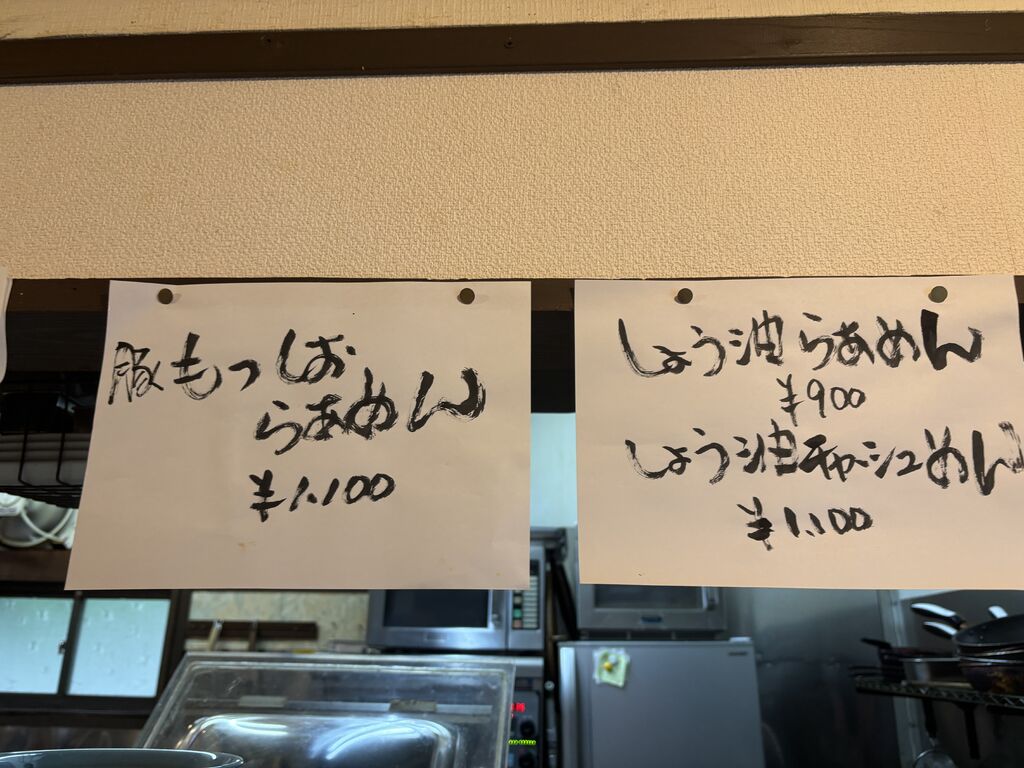 豚もつしお
らあめん
¥1,100
しょう油らあめん
¥900
しょう油チャーシューめん
¥1,100